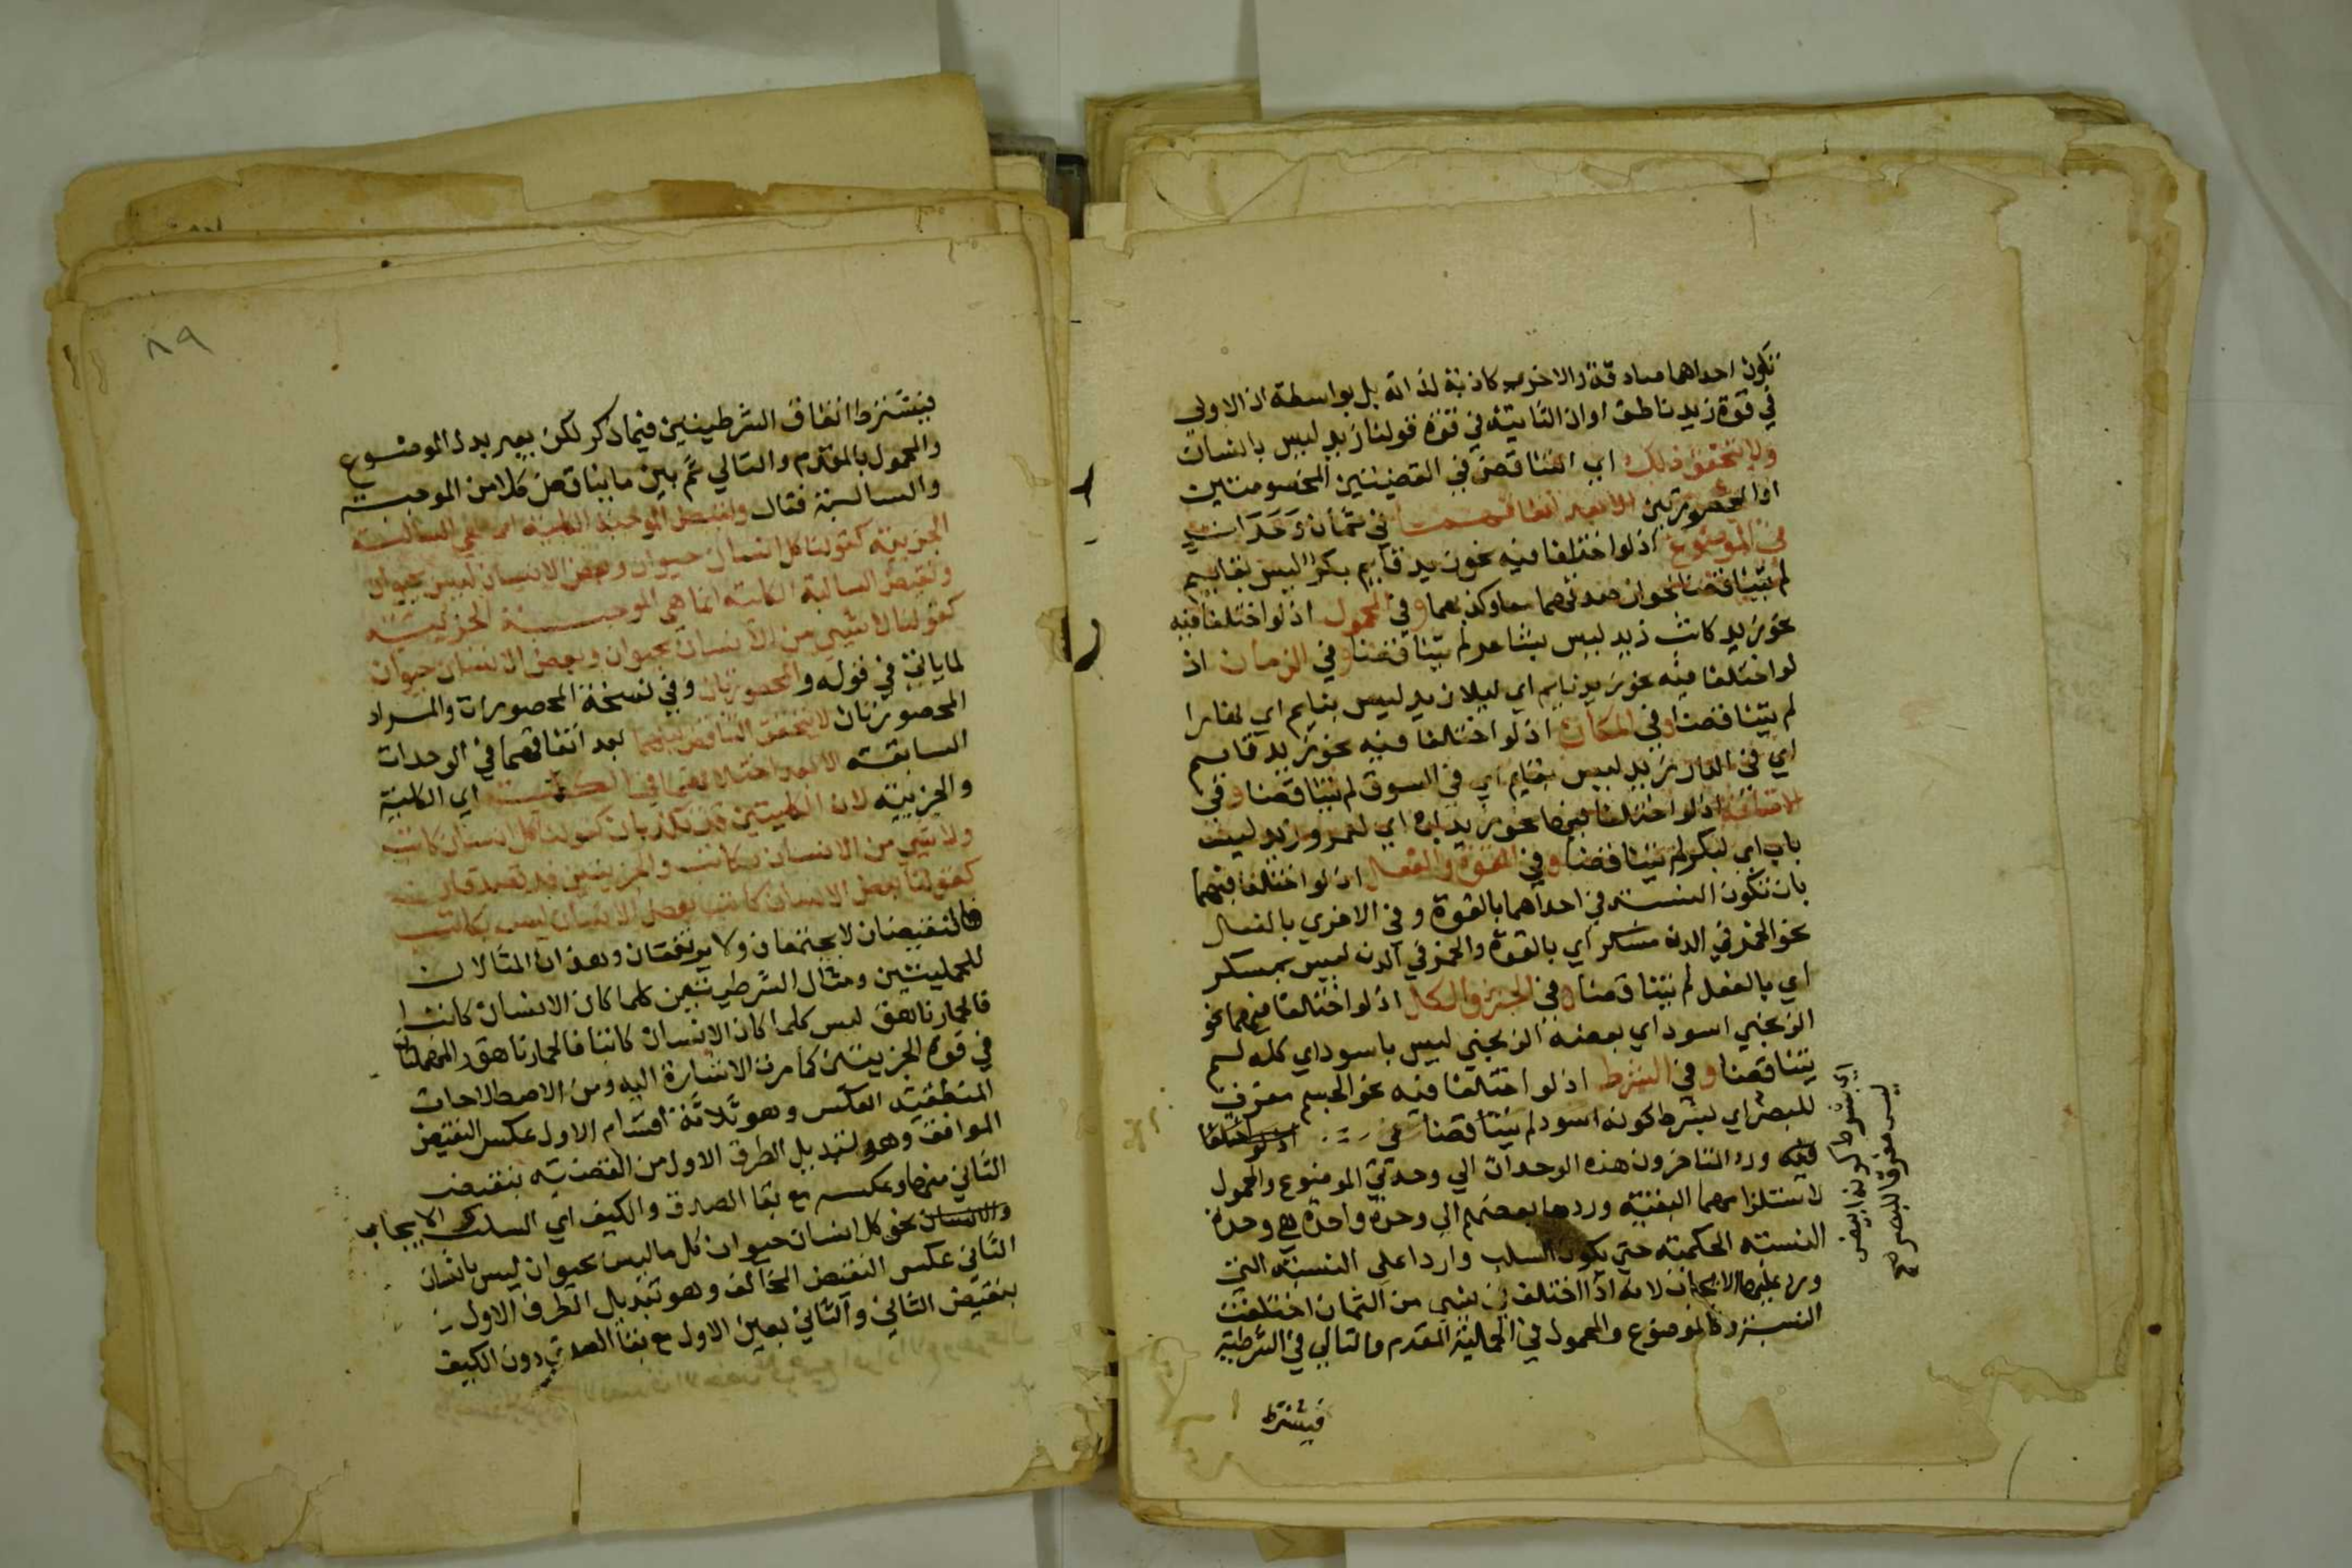 تكون احداهما صادقة والاخرى كاذبة لذاته بل بواسطة ان الاولى
في قوة زيد ناطق او ان الثانية في قوة قولنا زيد ليس بانسان
ولا يتحقق ذلك اي التناقض في القضيتين المخصوصتين
او المحصورتين الا بعد اتفاقهما في ثمان وحدات
في الموضوع اذ لو اختلفا فيه نحو زيد قايم بكر ليس بقايم
لم يتناقضا لجواز صدقهما معا وكذبهما وفي المحمول اذ لو اختلفا فيه
نحو زيد كاتب زيد ليس بشاعر لم يتناقضا وفي الزمان اذ
لو اختلفا فيه نحو زيد نايم اي ليلا زيد ليس بنايم اي نهارا
لم يتناقضا وفي المكان اذ لو اختلفا فيه نحو زيد قايم
اي في الدار زيد ليس بقايم اي في السوق لم يتناقضا وفي
الاضافة اذ لو اختلفا فيها نحو زيد اب اي لعمرو زيد ليس
باب اي لبكر لم يتناقضا وفي القوة والفعل اذ لو اختلفا فيهما
بان تكون النسبة في احداهما بالقوة وفي الاخري بالفعل
نحو الخمر في الدن مسكر اي بالقوة والخمر في الدن ليس بمسكر
اي بالفعل لم يتناقضا وفي الجزء والكل اذ لو اختلفا فيهما نحو
الزنجي اسود اي بعضه الزنجي ليس باسود اي كله لم
يتناقضا وفي الشرط اذ لو اختلفا فيه نحو الجسم مفرق
للبصر اي بشرط كونه اسود لم يتناقضا اذ لو اختلفا
فيه ورد المتاخرون هذه الوحدات الي وحدتي الموضوع والمحمول
لاستلزامهما البقية وردها بعضهم الي وحدة واحدة هي وحدة
النسبة الحكمية حتي يكون السلب واردا علي النسبة التي
ورد عليها الايجاب لانه اذا اختلف في شي من الثمان اختلفت
النسبة وكالموضوع والمحمول في الحملية المقدم والتالي في الشرطية
فيشترط
اي بشرط كونه ابيض
ليس مفرقا للبصر صح
٨٩
فيشترط اتفاق الشرطيتين فيما ذكر لكن يعبر بدل الموضوع
والمحمول بالمقدم والتالي ثم بين ما يناقض كلا من الموجبة
والسالبة فقال ونقيض الموجبة الكلية انما هي السالبة
الجزيية كقولنا كل انسان حيوان وبعض الانسان ليس بحيوان
ونقيض السالبة الكلية انما هي الموجبة الجزئية
كقولنا لا شي من الانسان بحيوان وبعض الانسان حيوان
لما ياتي في قوله والمحصورتان وفي نسخة المحصورات والمراد
المحصورتان لا يتحقق التناقض بينهما بعد اتفاقهما في الوحدات
السابقة الا بعد اختلافهما في الكمية اي الكلية
والجزيية لان الكليتين قد تكذبان كقولنا كل انسان كاتب
ولا شي من الانسان بكاتب والجزييتين قد تصدقان
كقولنا بعض الانسان كاتب بعض الانسان ليس بكاتب
فالنقيضان لا يجتمعان ولا يرتفعان وهذان المثالان
للحمليتين ومثال الشرطيتين كلما كان الانسان كاتبا
فالحمار ناهق ليس كلما كان الانسان كاتبا فالحمار ناهق والمهملتان
في قوة الجزييتين كما مرت الاشارة اليه ومن الاصطلاحات
المنطقية العكس وهو ثلاثة اقسام الاول عكس النقيض
الموافق وهو تبديل الطرف الاول من القضية بنقيض
الثاني منها وعكسه مع بقا الصدق والكيف اي السلب والايجاب
والانسان نحو كل انسان حيوان كل ما ليس بحيوان ليس بانسان
الثاني عكس النقيض المخالف وهو تبديل الطرف الاول
بنقيض الثاني والثاني بعين الاول مع بقا الصدق دون الكيف